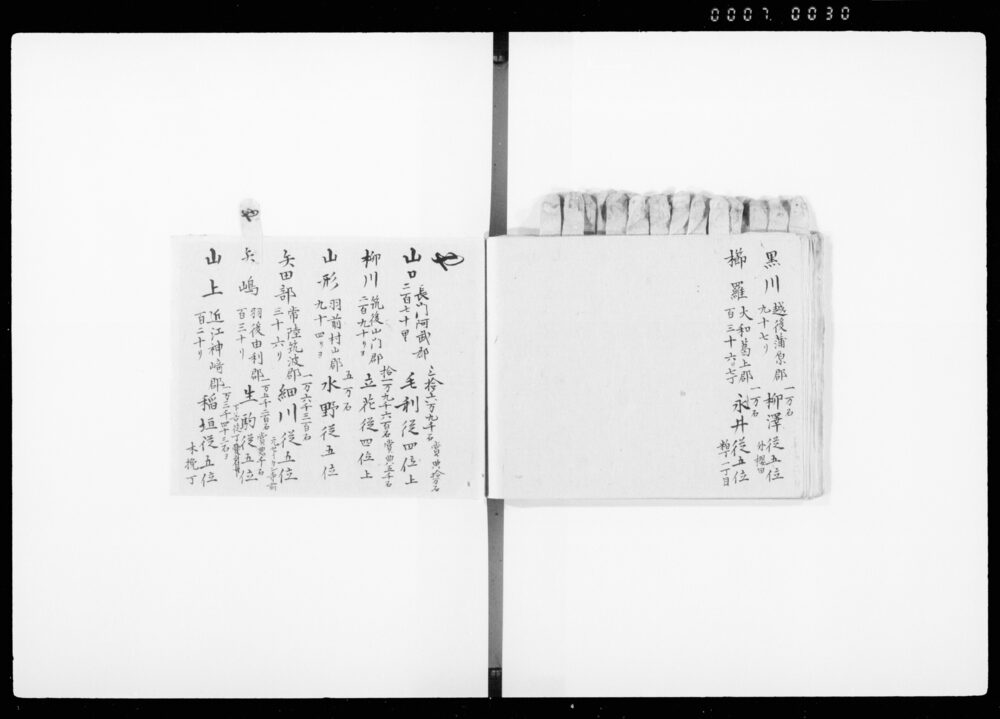 0007 0030
黒川 越後蒲原郡 一万石 柳澤従五位
九十七り 外櫻田
櫛羅 大和葛上郡 一万石 永井従五位
百三十六り七丁
や
山口 長門阿武郡 三拾六万九千石 毛利従四位上
二百七十 賞典拾万石
柳川 筑後山門郡 拾一万九千六百石 立花従四位上
二百九十り 賞典五千石
山形 羽前村山郡 五万石 水野従五位
九十四り
矢田部 常陸筑波郡 一万六千三百石 細川従五位
三十六り
矢嶋 羽後由利郡 一万五千二百石 生駒従五位
百三十り 賞典千石
山上 近江神崎郡 一万三千四十三石 稲垣従五位
百二十り 木挽丁
や